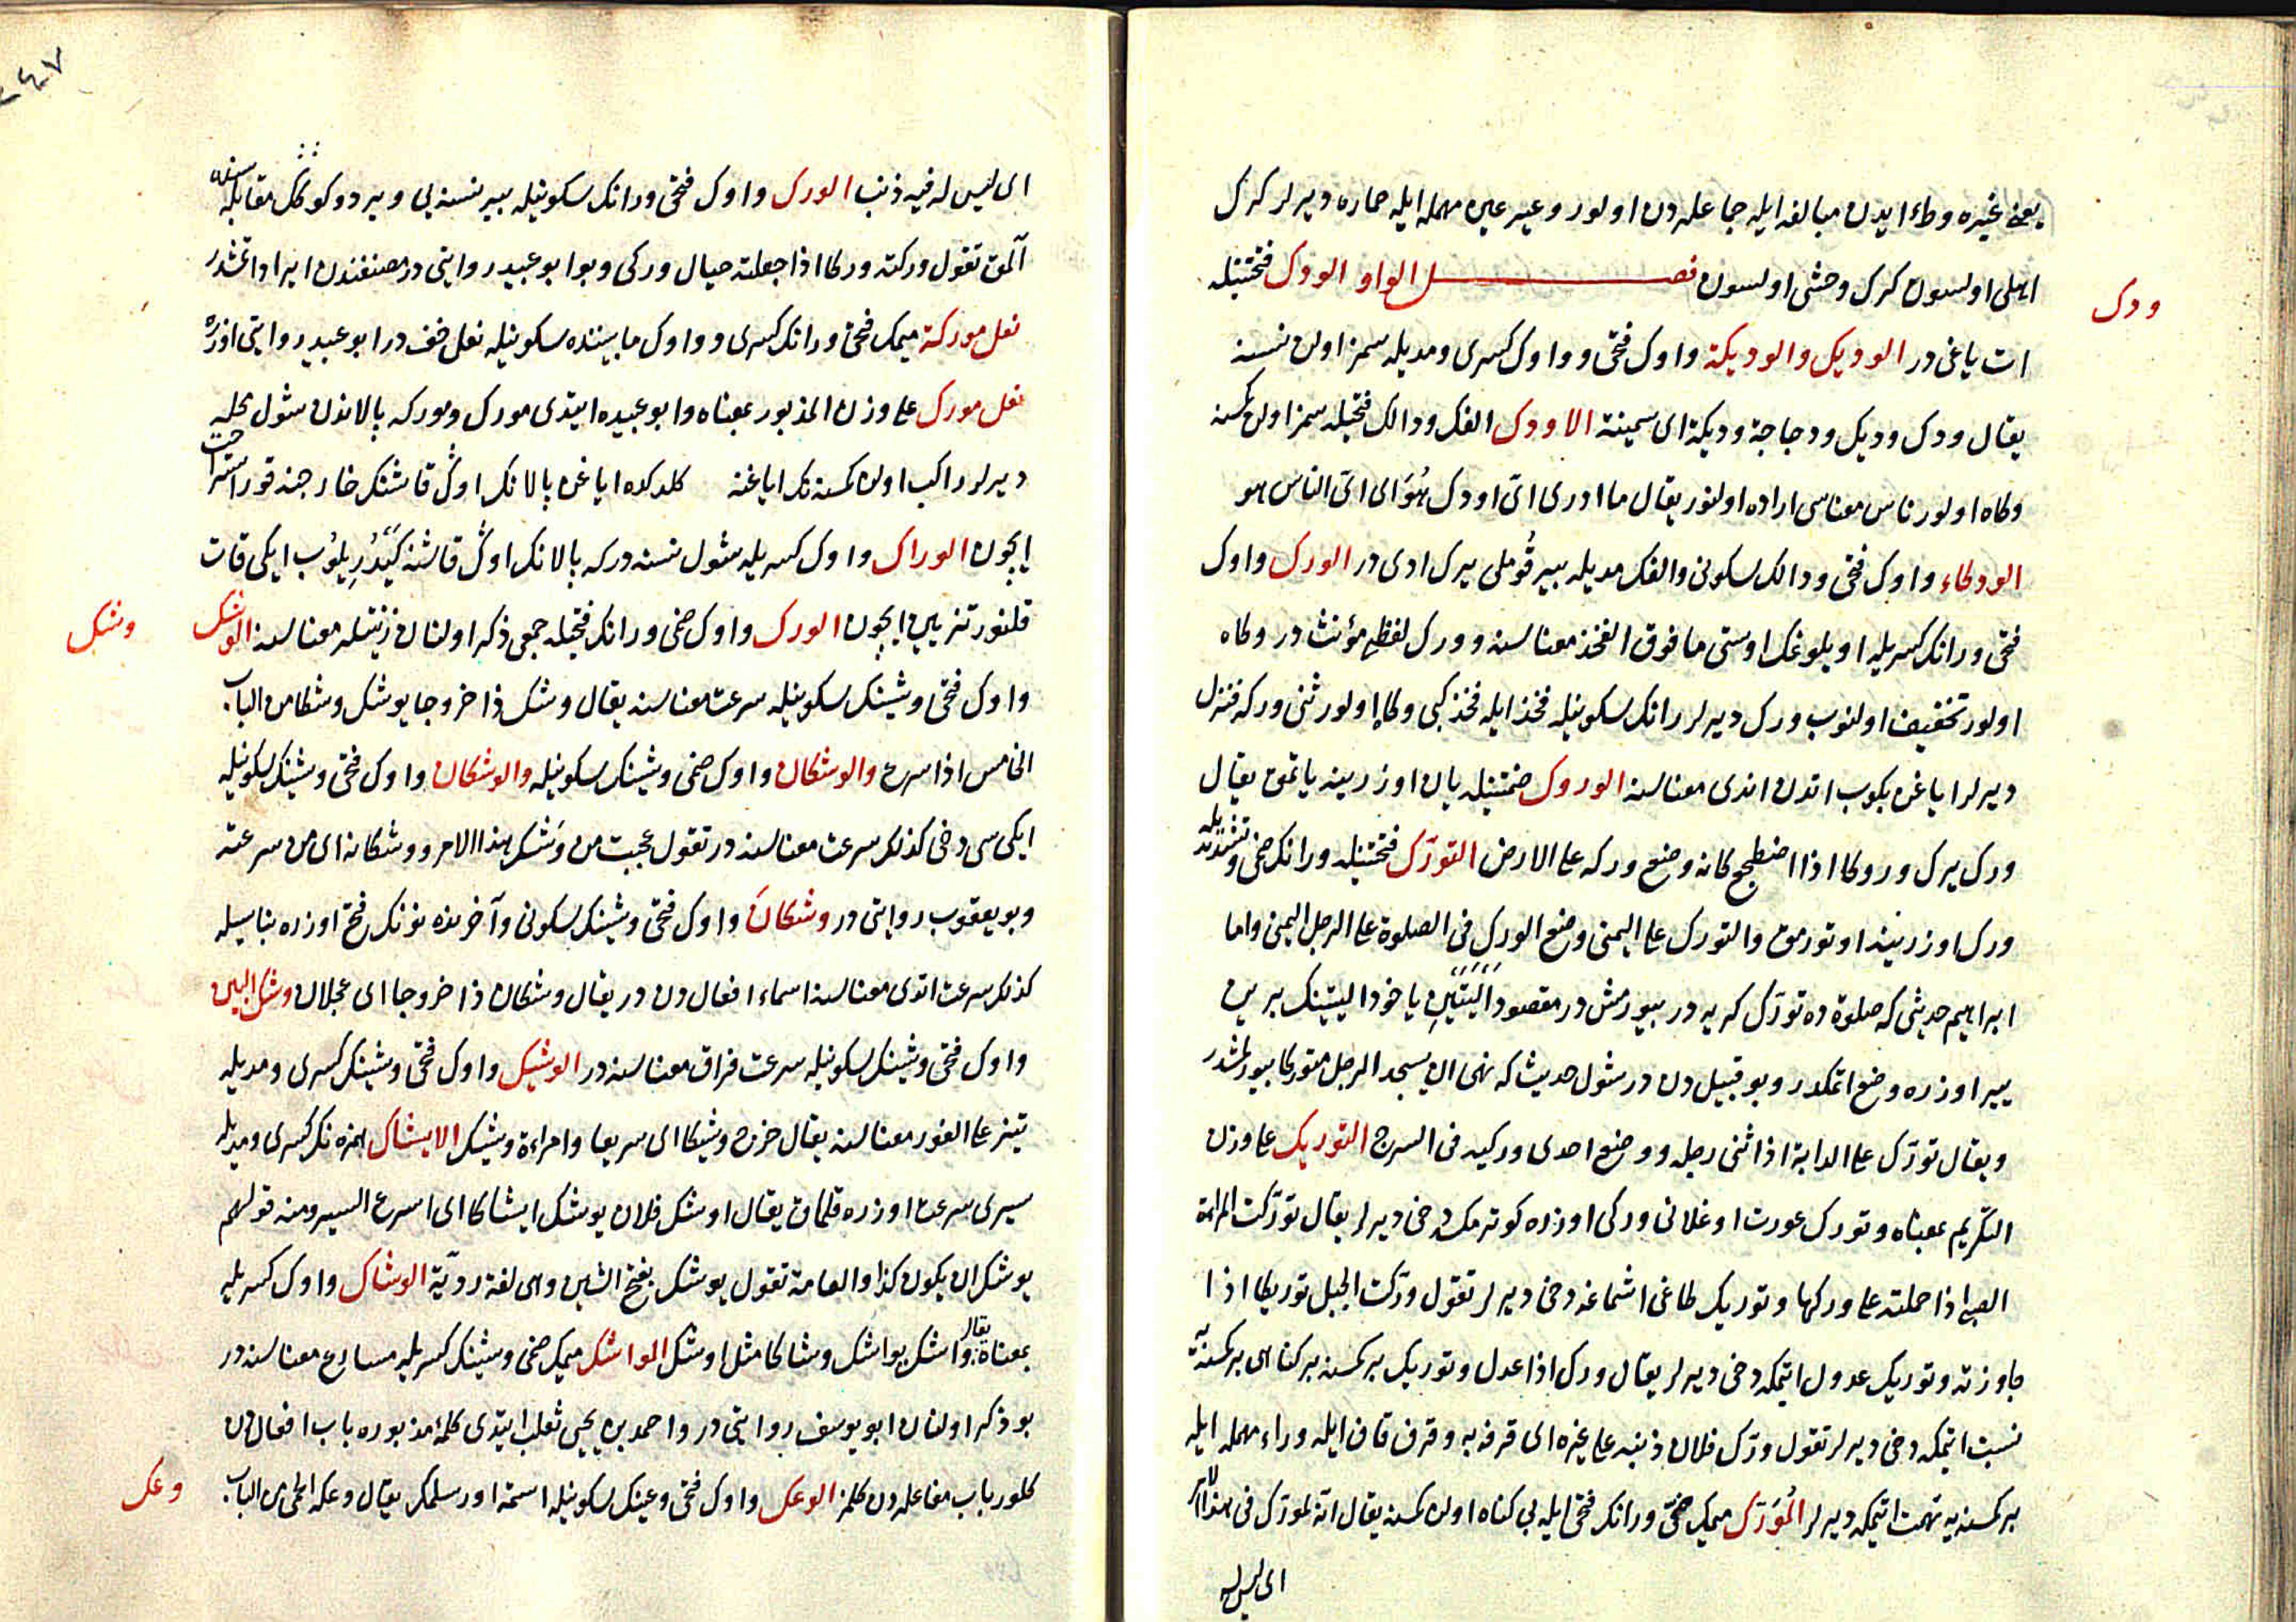 یعنی غیره وطء ایدن مبالغه ایله جماعله دن اولور وعیر عین مهمله ایله حماره دیرلر کرک
اهلی اولسون کرک وحشی اولسون فصل الواو الودک فتحتینله
ودک
ات یاغی در الودیک والودیکة واوک فتحی وواوک کسری ومدیله سمز اولن نسنه
یقال ودک ودیک ودجاجة ودیکة ای سمینة الاودک الفک ودالک فتحیله سمز اولن کمسنه
وکاه اولور ناس معناسی اراده اولنور یقال ما ادری ای اودک هُوَ ای ای الناس هو
الودکاء واوک فتحی ودالک سکونی والفک مدیله بیر قُوملی یرک ادی در الورک واوک
فتحی ورانک کسریله اویلوغک اوستی ما فوق الفخذ معناسنه وورک لفظی مؤنث در وکاه
اولور تخفیف اولنوب ورک دیرلر رانک سکونیله فخذ ایله فخذ کبی وکاه اولور ثنی ورکه فنزل
دیرلر ایاغن بکوب اتدن اندی معناسنه الوروک ضمتینله یان اوزرینه یاتمق یقال
ورک یرک وروکا اذا اضطجع کانه وضع ورکه علی الارض التورّک فتحتینله ورانک ضمی وتشدیدیله
ورک اوزرینه اوتورمق والتورک علی الیمنی وضع الورک فی الصلوة علی الرجل الیمنی واما
ابراهیم حدیثی که صلوة ده تورّک کریه در بیورمش در مقصود اَلیَتَینِ یاخود الیتینک برین
ییر اوزره وضع اتمکدر وبو قبیل دن در شول حدیث که نهی ان یسجد الرجل متورکا بیورلمشدر
ویقال تورّک علی الدابة اذا ثنی رجله ووضع احدی ورکیه فی السرج التوریک علی وزن
التکریم بمعناه وتورک عورت اوغلانی ورکی اوزره کوترمک دخی دیرلر یقال تورّکت المراة
الصبی اذا حملته علی ورکها وتوریک طاغی اشماغه دخی دیرلر تقول ورّکت الجبل توریکا اذا
جاوزته وتوریک عدول اتمکه دخی دیرلر یقال ورک اذا عدل وتوریک بر کمسنه بر کناهی بر کمسنه یه
نسبت اتمکه دخی دیرلر تقول ورّک فلان ذنبه علی غیره ای قرفه به وقرف قاف ایله وراء مهمله ایله
بر کمسنه یه تهمت اتمکه دیرلر المُوَرّک میمک ضمی ورانک فتحی ایله بی کناه اولن کمسنه یقال انه لمورّک فی هذا الامر
ای لیس له
٢٤٧
ای لیس له فیه ذنب الورک واوک فتحی ورانک سکونیله بیر نسنه یی ویردوکوکک مقابله سنه
آلمق تقول ورکته ورکا اذا جعلته حیال ورکی وبو ابو عبید روایتی در مصنفندن ایراد اتمشدر
نعل مورکة میمک فتحی ورانک کسری وواوک مابیننده سکونیله نعل خف در ابو عبید روایتی اوزره
نعل مورک علی وزن المذبور بمعناه وابو عبیده ایتدی مورک ومورکه بالانون شول محلیه
دیرلر راکب اولن کمسنه نک ایاغنه کلدکده ایاغن بالانک اوک قاشنک خارجنه قور استراحت
ایچون الوراک واوک کسریله شول نسنه در که بالانک اوک قاشنه کیَدُریلوُب ایکی قات
قلنور تزیین ایچون الورک واوک ضمی ورانک فتحیله جمعی ذکر اولنان زینتلر معناسنه الوشک
وشک
واوک فتحی وشینک سکونیله سرعت معناسنه یقال وشک ذا خروجا یوشک وشکا من الباب
الخامس اذا سرع والوشکان واوک ضمی وشینک سکونیله والوشکان واوک فتحی وشینک سکونیله
ایکی سی دخی کذلک سرعت معناسنه در تقول عجبت من وَشک هذا الامر ووشکانه ای من سرعته
وبو یعقوب روایتی در وشکانَ واوک فتحی وشینک سکونی وآخرنده نونک فتح اوزره بناسیله
کذلک سرعت اتدی معناسنه اسماء افعال دن در یقال وشکان ذا خروجا ای عجلان وشک البین
واوک فتحی وشینک سکونیله سرعت فراق معناسنه در الوشیک واوک فتحی وشینک کسری ومدیله
تیز علی الفور معناسنه یقال خرج وشیکا ای سریعا وامراءة وشیک الایشاک همزه نک کسری ومدیله
سیری سرعت اوزره قلمق یقال اوشک فلان یوشک ایشاکا ای اسرع السیر ومنه قولهم
یوشک ان یکون کذا والعامة تقول یوشک بفتح الشین وهی لغة ردیّة الوشاک واوک کسریله
بمعناه یقال واشک یواشک وشاکا مثل اوشک المواشک میمک ضمی وشینک کسریله مسارع معناسنه در
بو ذکر اولنان ابو یوسف روایتی در واحمد بن یحیی ثعلب ایتدی کلمهٔ مذبوره باب افعال دن
کلور باب مفاعله دن کلمز الوعک واوک فتحی وعینک سکونیله اسمة اور سلمک یقال وعکه الحمی من الباب
وعک